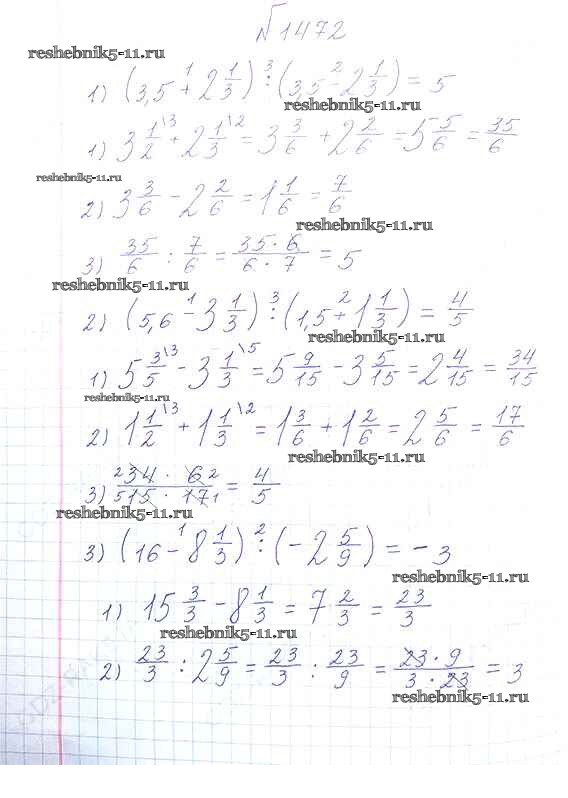 №1472
reshebnik5-11.ru
1) (3,5 + 2 1/3) : (3,5 - 2 1/3) = 5
reshebnik5-11.ru
1) 3 1/2 \3 + 2 1/3 \2 = 3 3/6 + 2 2/6 = 5 5/6 = 35/6
reshebnik5-11.ru
2) 3 3/6 - 2 2/6 = 1 1/6 = 7/6
reshebnik5-11.ru
3) 35/6 : 7/6 = 35 · 6/6 · 7 = 5
reshebnik5-11.ru
2) (5,6 - 3 1/3) : (1,5 + 1 1/3) = 4/5
reshebnik5-11.ru
1) 5 3/5 \3 - 3 1/3 \5 = 5 9/15 - 3 5/15 = 2 4/15 = 34/15
reshebnik5-11.ru
2) 1 1/2 \3 + 1 1/3 \2 = 1 3/6 + 1 2/6 = 2 5/6 = 17/6
reshebnik5-11.ru
3) 2 34 · 6 2/5 15 · 17 1 = 4/5
reshebnik5-11.ru
3) (16 - 8 1/3) : (-2 5/9) = -3
reshebnik5-11.ru
1) 15 3/3 - 8 1/3 = 7 2/3 = 23/3
reshebnik5-11.ru
2) 23/3 : 2 5/9 = 23/3 : 23/9 = 23 · 9/3 · 23 = 3
reshebnik5-11.ru